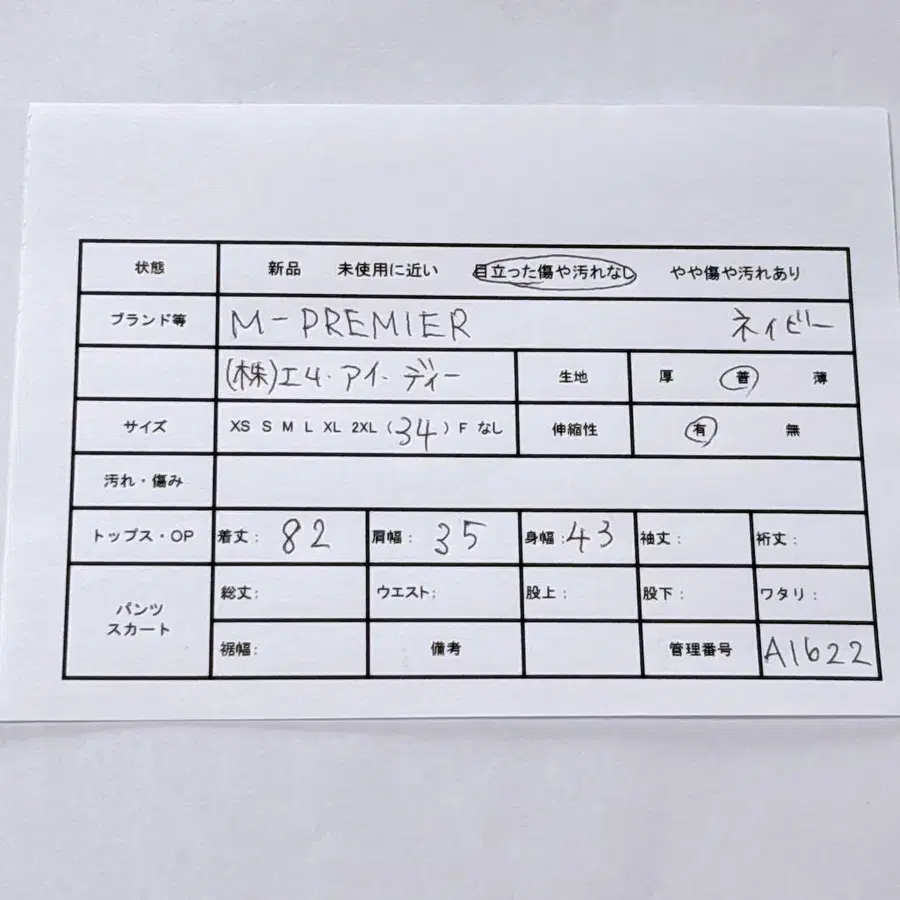 状態 新品 未使用に近い 目立った傷や汚れなし やや傷や汚れあり
ブランド等 M-PREMIER ネイビー
(株)エム.アイ.ディー 生地 厚 普 薄
サイズ XS S M L XL 2XL (34) F なし 伸縮性 有 無
汚れ・傷み
トップス・OP 着丈: 82 肩幅: 35 身幅:43 袖丈: 裄丈:
パンツ スカート 総丈: ウエスト: 股上: 股下: ワタリ:
裾幅: 備考 管理番号 A1622